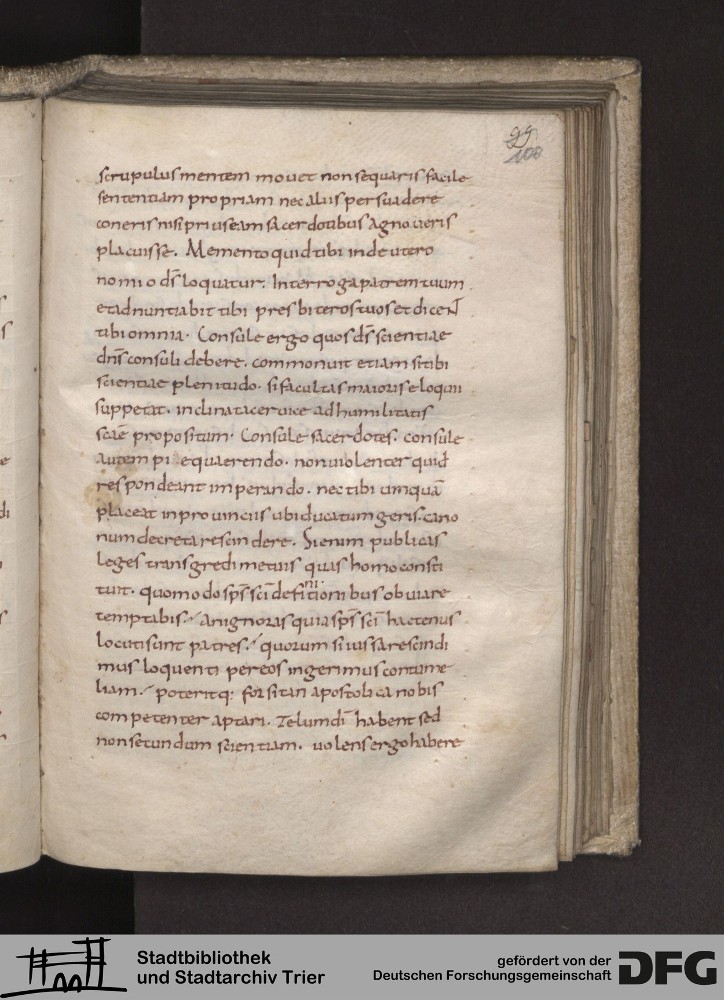 99
100
scrupulus mentem mouet non sequaris facile
sententiam propriam nec aliis persuadere
coneris nisi prius eam sacerdotibus agnoueris
placuisse. Memento quid tibi in deutero
nomio ds̄ loquatur. Interroga patrem tuum
et adnuntiabit tibi presbiteros tuos et dicent
tibi omnia. Consule ergo quos ds̄ scientiae
dn̄s consuli debere. commonuit etiam si tibi
scientiae plenitudo. si facultas maioris eloquii
suppetat. inclinata ceruice ad humilitatis
scāe propositum. Consule sacerdotes. consule
autem pie quaerendo. non uiolenter quid
respondeant imperando. nec tibi umquā
placeat in prouinciis ubi ducatum geris. cano
num decreta rescindere. Si enim publicas
leges transgredi metuis quas homo consti
tuit. quomodo sps̄ sc̄i definitionibus obuiare
temptabis. An ignoras quia sps̄ sc̄i hactenus
locuti sunt patres. quorum si iussa rescindi
mus loquenti per eos ingerimus contume
liam. poteritq: forsitan apostolica nobis
competenter aptari. Zelum dī habent sed
non secundum scientiam. uolens ergo habere
Stadtbibliothek
und Stadtarchiv Trier
gefördert von der
Deutschen Forschungsgemeinschaft
DFG